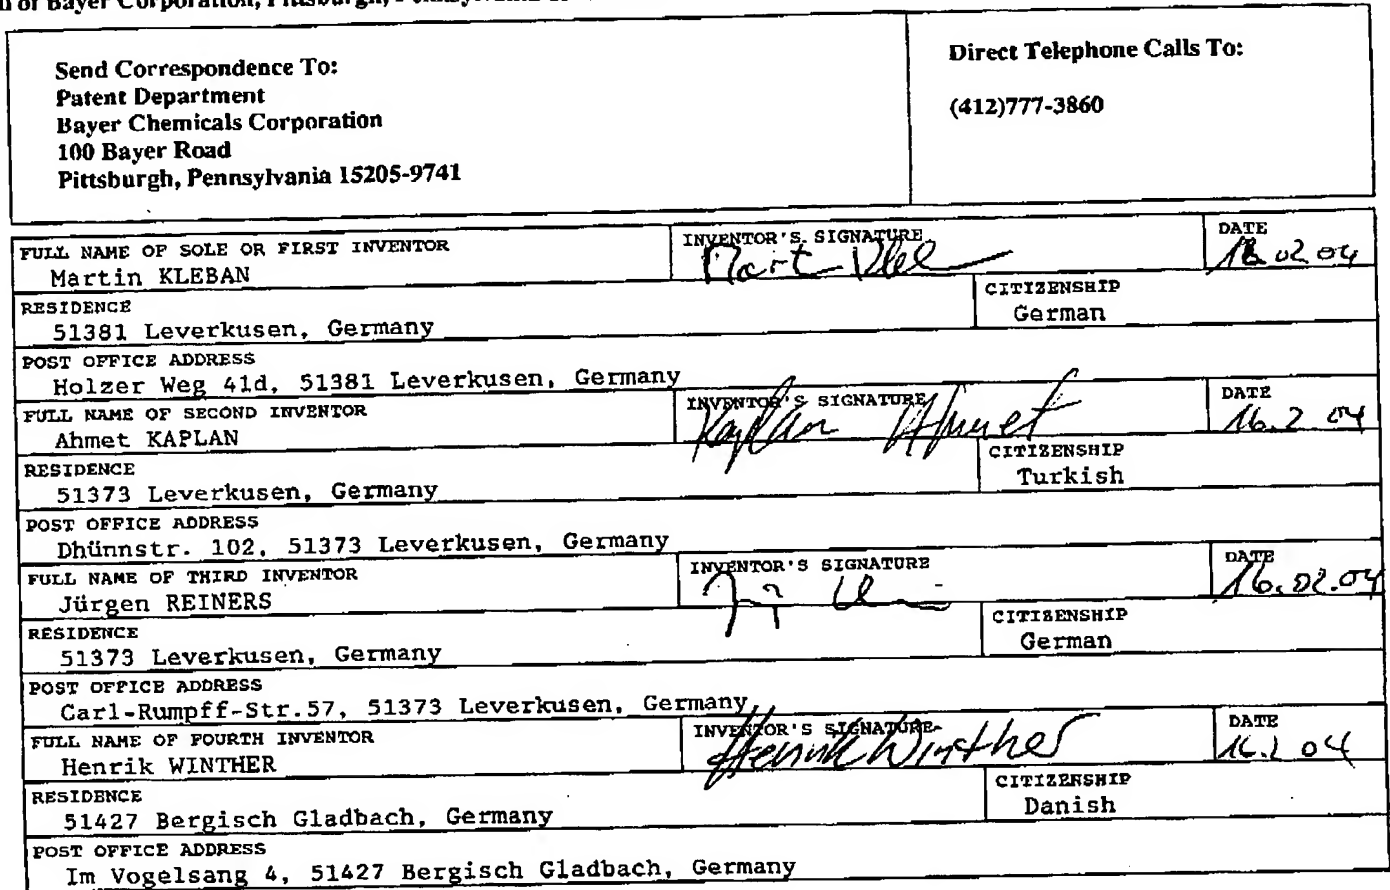 of Bayer Corporation, Pittsburgh, Pennsylvania
Send Correspondence To:
Patent Department
Bayer Chemicals Corporation
100 Bayer Road
Pittsburgh, Pennsylvania 15205-9741
Direct Telephone Calls To:
(412)777-3860
FULL NAME OF SOLE OR FIRST INVENTOR
Martin KLEBAN
INVENTOR'S SIGNATURE
DATE
02 04
RESIDENCE
51381 Leverkusen, Germany
CITIZENSHIP
German
POST OFFICE ADDRESS
Holzer Weg 41d, 51381 Leverkusen, Germany
FULL NAME OF SECOND INVENTOR
Ahmet KAPLAN
INVENTOR'S SIGNATURE
Kaplan Ahmet
DATE
16.2 04
RESIDENCE
51373 Leverkusen, Germany
CITIZENSHIP
Turkish
POST OFFICE ADDRESS
Dhünnstr. 102, 51373 Leverkusen, Germany
FULL NAME OF THIRD INVENTOR
Jürgen REINERS
INVENTOR'S SIGNATURE
DATE
16.02.04
RESIDENCE
51373 Leverkusen, Germany
CITIZENSHIP
German
POST OFFICE ADDRESS
Carl-Rumpff-Str.57, 51373 Leverkusen, Germany
FULL NAME OF FOURTH INVENTOR
Henrik WINTHER
INVENTOR'S SIGNATURE
Henrik Winther
DATE
16.2 04
RESIDENCE
51427 Bergisch Gladbach, Germany
CITIZENSHIP
Danish
POST OFFICE ADDRESS
Im Vogelsang 4, 51427 Bergisch Gladbach, Germany